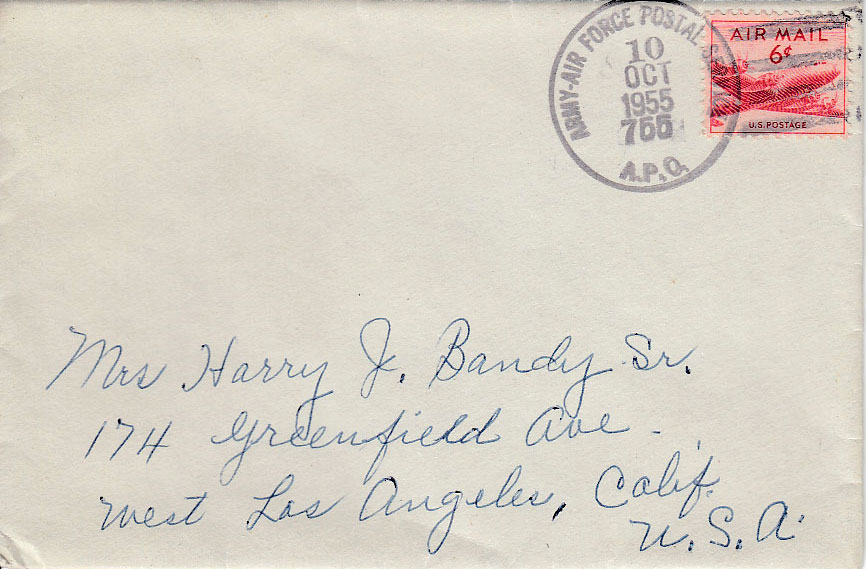 ARMY-AIR FORCE POSTAL SERVICE
10
OCT
1955
755
A.P.O.
AIR MAIL
6¢
U.S. POSTAGE
Mrs Harry J. Bandy Sr.
174 Greenfield Ave
West Los Angeles, Calif.
U.S.A.